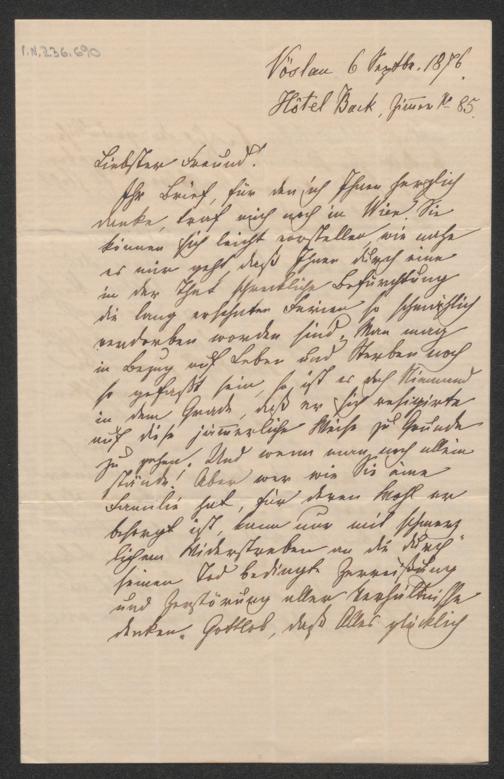 I.N. 236.690
Vöslau 6 Septbr. 1876.
Hôtel Back, Zimmer No 85.
Liebster Freund!
Ihr Brief, für den ich Ihnen herzlich
danke, traf mich noch in Wien. Sie
können sich leicht vorstellen wie nahe
es mir geht, daß Ihnen durch eine
in der That schreckliche Befürchtung
die lang ersehnten Ferien so schmählich
verdorben worden sind. Man mag
in Bezug auf Leben und Sterben noch
so gefaßt sein, so ist es doch Niemand
in dem Grade, daß er sich resignirte
auf diese jämmerliche Weise zu Grunde
zu gehen. Und wenn man noch allein
stünde! Aber wer wie Sie eine
Familie hat, für deren Wohl er
besorgt ist, kann nur mit schmerz
lichem Widerstreben an die durch
seinen Tod bedingte Zerreißung
und Zerstörung aller Verhältnisse
denken. Gottlob, daß Alles glücklich